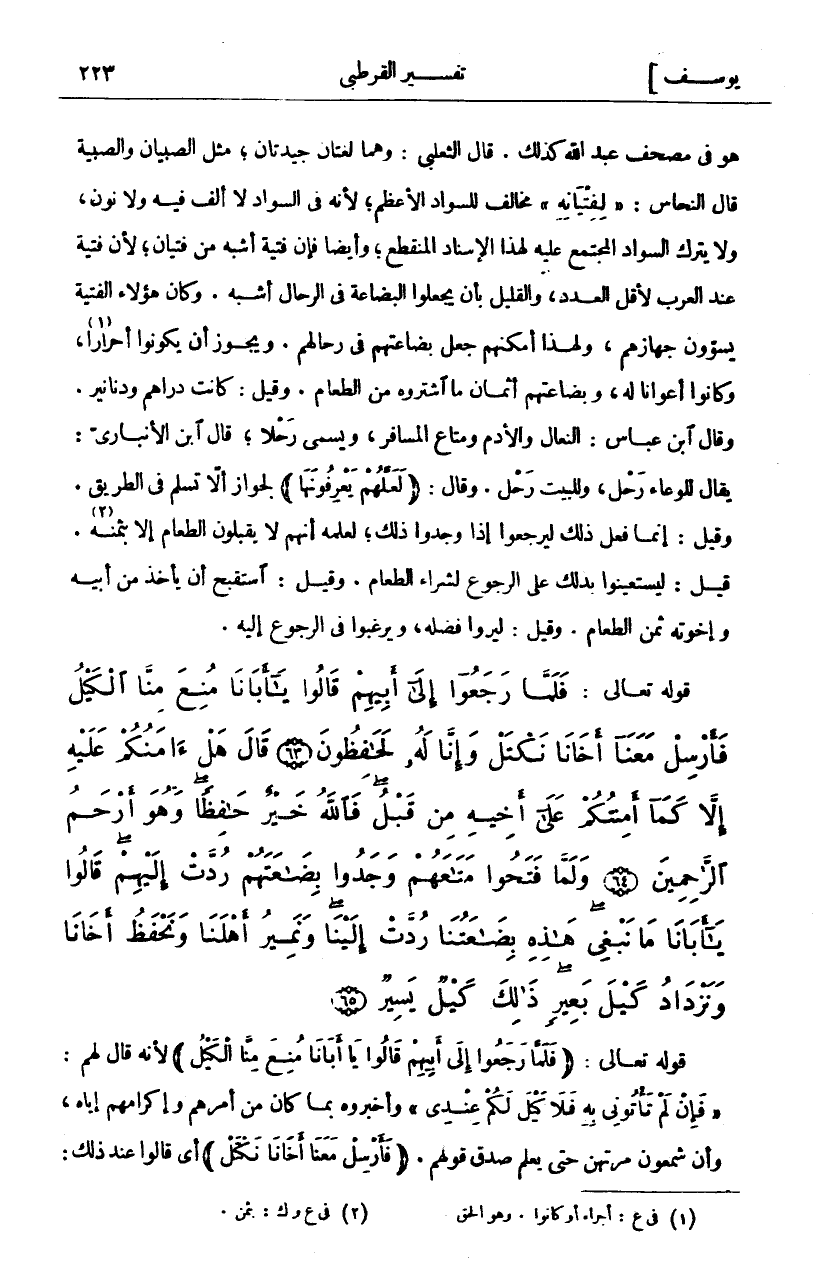 يوسف] تفسير القرطبى ٢٢٣
هو فى مصحف عبد الله كذلك . قال الثعلبي : وهما لغتان جيدتان ؛ مثل الصبيان والصبية
قال النحاس : « لِفِتْيَانِهِ » مخالف للسواد الأعظم؛ لأنه فى السواد لا ألف فيه ولا نون،
ولا يترك السواد المجتمع عليه لهذا الإسناد المنقطع؛ وأيضا فإن فتية أشبه من فتيان؛ لأن فتية
عند العرب لأقل العدد، والقليل بأن يجعلوا البضاعة فى الرحال أشبه . وكان هؤلاء الفتية
يسوّون جهازهم ، ولهذا أمكنهم جعل بضاعتهم فى رحالهم . ويجوز أن يكونوا أحرارا(١)،
وكانوا أعوانا له، وبضاعتهم أثمان ما آشتروه من الطعام . وقيل : كانت دراهم ودنانير .
وقال آبن عباس : النعال والأدم ومتاع المسافر، ويسمى رَحْلا ؛ قال آبن الأنبارىّ :
يقال للوعاء رَحْل، وللبيت رَحْل . وقال : ( لَعَلَّهُمْ يَعْرِفُونَهَا ) لجواز ألّا تسلم فى الطريق .
وقيل : إنما فعل ذلك ليرجعوا إذا وجدوا ذلك؛ لعلمه أنهم لا يقبلون الطعام إلا بثمنه(٢) .
قيل : ليستعينوا بذلك على الرجوع لشراء الطعام . وقيل : آستقبح أن يأخذ من أبيه
و إخوته ثمن الطعام . وقيل : ليروا فضله، ويرغبوا فى الرجوع إليه .
قوله تعالى : فَلَمَّا رَجَعُوٓا إِلَىٰٓ أَبِيهِمْ قَالُوا يَـٰٓأَبَانَا مُنِعَ مِنَّا ٱلْكَيْلُ
فَأَرْسِلْ مَعَنَآ أَخَانَا نَكْتَلْ وَإِنَّا لَهُۥ لَحَـٰفِظُونَ ٦٣ قَالَ هَلْ ءَامَنُكُمْ عَلَيْهِ
إِلَّا كَمَآ أَمِنتُكُمْ عَلَىٰٓ أَخِيهِ مِن قَبْلُ ۖ فَٱللَّهُ خَيْرٌ حَـٰفِظًا ۖ وَهُوَ أَرْحَمُ
ٱلرَّٰحِمِينَ ٦٤ وَلَمَّا فَتَحُوا مَتَـٰعَهُمْ وَجَدُوا بِضَـٰعَتَهُمْ رُدَّتْ إِلَيْهِمْ ۖ قَالُوا
يَـٰٓأَبَانَا مَا نَبْغِى ۖ هَـٰذِهِۦ بِضَـٰعَتُنَا رُدَّتْ إِلَيْنَا ۖ وَنَمِيرُ أَهْلَنَا وَنَحْفَظُ أَخَانَا
وَنَزْدَادُ كَيْلَ بَعِيرٍ ۖ ذَٰلِكَ كَيْلٌ يَسِيرٌ ٦٥
قوله تعالى : ( فَلَمَّا رَجَعُوا إِلَى أَبِيهِمْ قَالُوا يَا أَبَانَا مُنِعَ مِنَّا الْكَيْلُ ) لأنه قال لهم :
« فَإِنْ لَمْ تَأْتُونِى بِهِ فَلَا كَيْلَ لَكُمْ عِنْدِى » وأخبروه بما كان من أمرهم و إكرامهم إياه ،
وأن شمعون مرتهن حتى يعلم صدق قولهم . ( فَأَرْسِلْ مَعَنَا أَخَانَا نَكْتَلْ ) أى قالوا عند ذلك :
(١) فى ع : أجراء أو كانوا . وهو الحق (٢) فى ع و ك : بثمن .